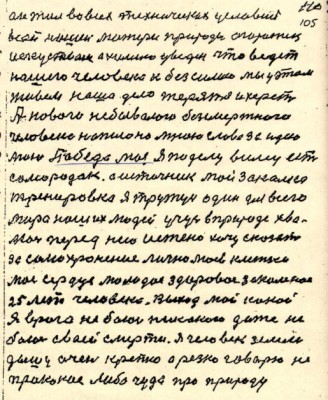 105
ант жив во всех технических условий
всей нашей матери природы
искуством увиден что ведет
нашего человека к бессилию мы этом
живем наше дело терять и хереть
А нового небывалого безсмертного
человека написано мною слова за идею
мою Победа моя Я по делу вижу есть
самородок. а источник мой Закалка
тренировка Я тружусь один для всего
мира наших людей учусь в природе хва-
люсь перед нею истено хочу сказать
за самохронение лично моей клетки
мое сердце молодое здоровое закаленое
25 лет человека. Выход мой какой
Я врага не боюсь никакого даже не
боюсь своей смерти. Я человек земли
дышу очень крепко а резко говорю не
про какое либо чуда про природу